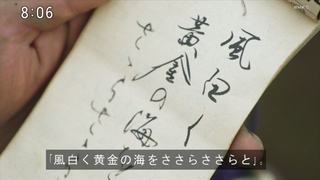 8:06
風白く
黄金の海を
さゝらさ
「風白く黄金の海をささらささらと」。